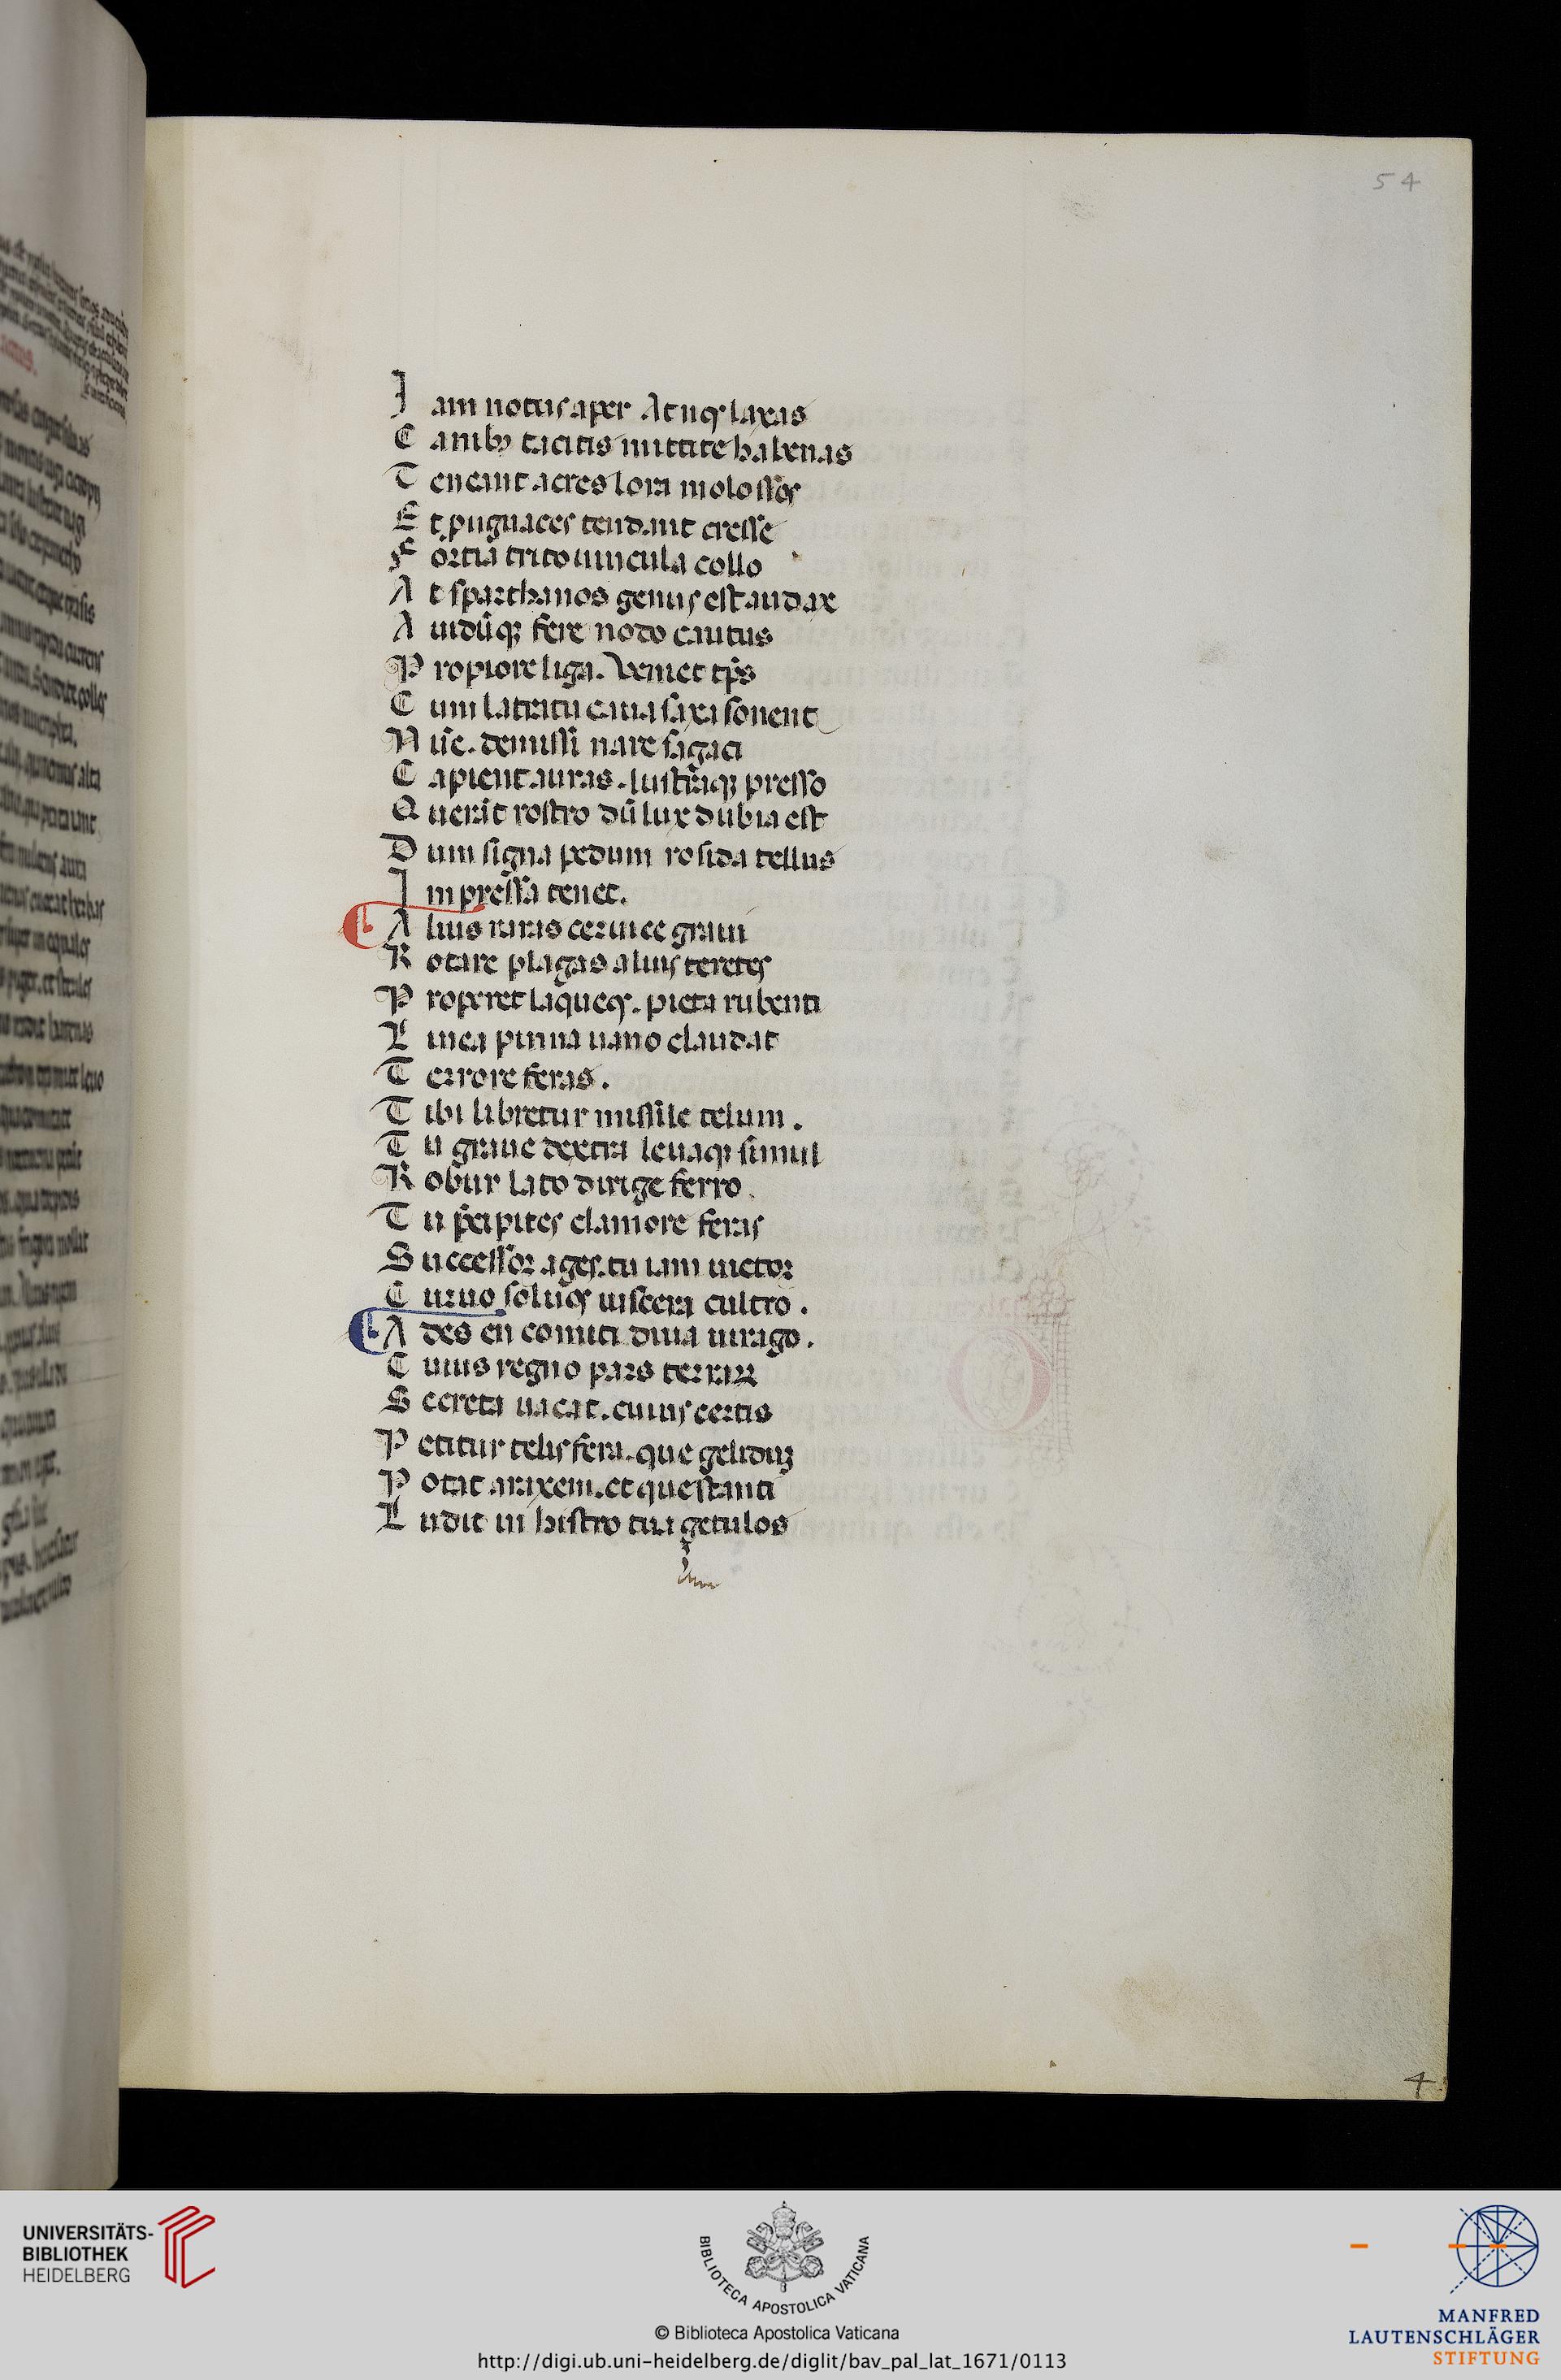 54
J am notus aper At uos laxas
C anibꝫ tacitis mittite habenas
T eneant acres lora molossos
E t pugnaces tendant cresse
F ortia trito uincula collo
A t sparthanos genus est audax
A uidūqꝫ fere nodo cautus
P ropiore liga. Veniet tp̄s
C um latratu caua saxa sonent
N ūc. demissi nare sagaci
C apient auras. lustraqꝫ presso
Q uerāt rostro dū lux dubia est
D um signa pedum rosida tellus
J mpressa tenet.
A lius raras ceruice graui
R otare plagas alius teretes
P roperet laqueos. picta rubenti
L inea pinna uano claudat
T errore feras.
T ibi libretur missile telum.
T u graue dextra leuaqꝫ simul
R obur lato dirige ferro.
T u p̄cipites clamore feras
S uccessor ages. tu iam uictor
C uruo solues uiscera cultro.
A des en comiti diua uirago.
C uius regno pars terraꝝ
S ecreta uacat. cuius certis
P etitur telis fera. que gelidūꝫ
P otat araxem. et que stanti
L udit in histro tua getulos
4
UNIVERSITÄTS-
BIBLIOTHEK
HEIDELBERG
BIBLIOTECA APOSTOLICA VATICANA
© Biblioteca Apostolica Vaticana
http://digi.ub.uni-heidelberg.de/diglit/bav_pal_lat_1671/0113
MANFRED
LAUTENSCHLÄGER
STIFTUNG